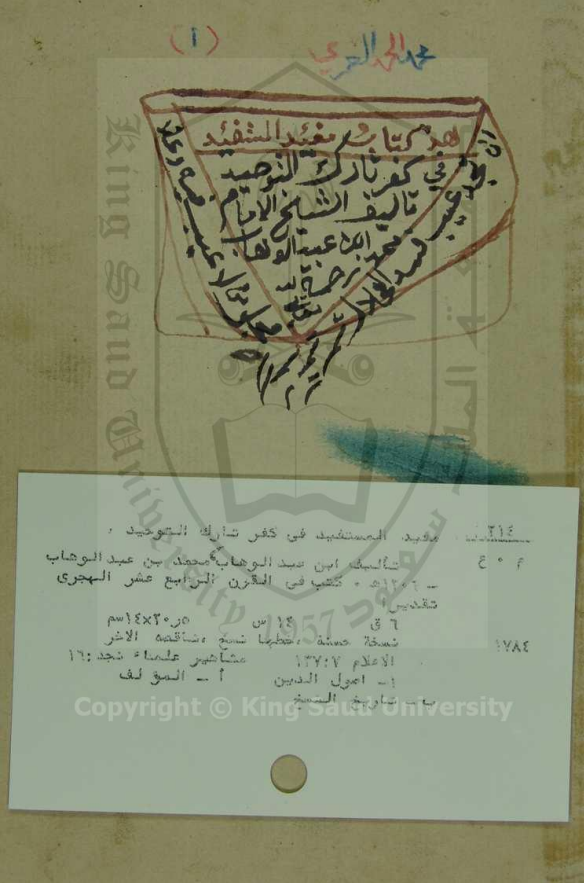 محمد الحمد العمري
(١)
هذا كتاب مفيد المستفيد
في كفر تارك التوحيد
تاليف الشيخ الامام
محمد ابن عبد الوهاب
رحمة الله
تعالى
ان تجد عيب فسد الخللا
٢١٤
مفيد المستفيد في كفر تارك التوحيد ،
تأليف ابن عبد الوهاب، محمد بن عبد الوهاب
- ١٢٠٦هـ ٠ كتب في القرن الرابع عشر الهجري
تقديرا
٦ ق ١٤ س ٢٠٫٥×١٤سم
١٧٨٤
نسخة حسنة ، خطها نسخ ، ناقصة الآخر
الاعلام ٧:١٣٧ مشاهير علماء نجد :١٦
١- اصول الدين أ - المؤلف
ب- تاريخ النسخ
King Saud University
1957
Copyright © King Saud University